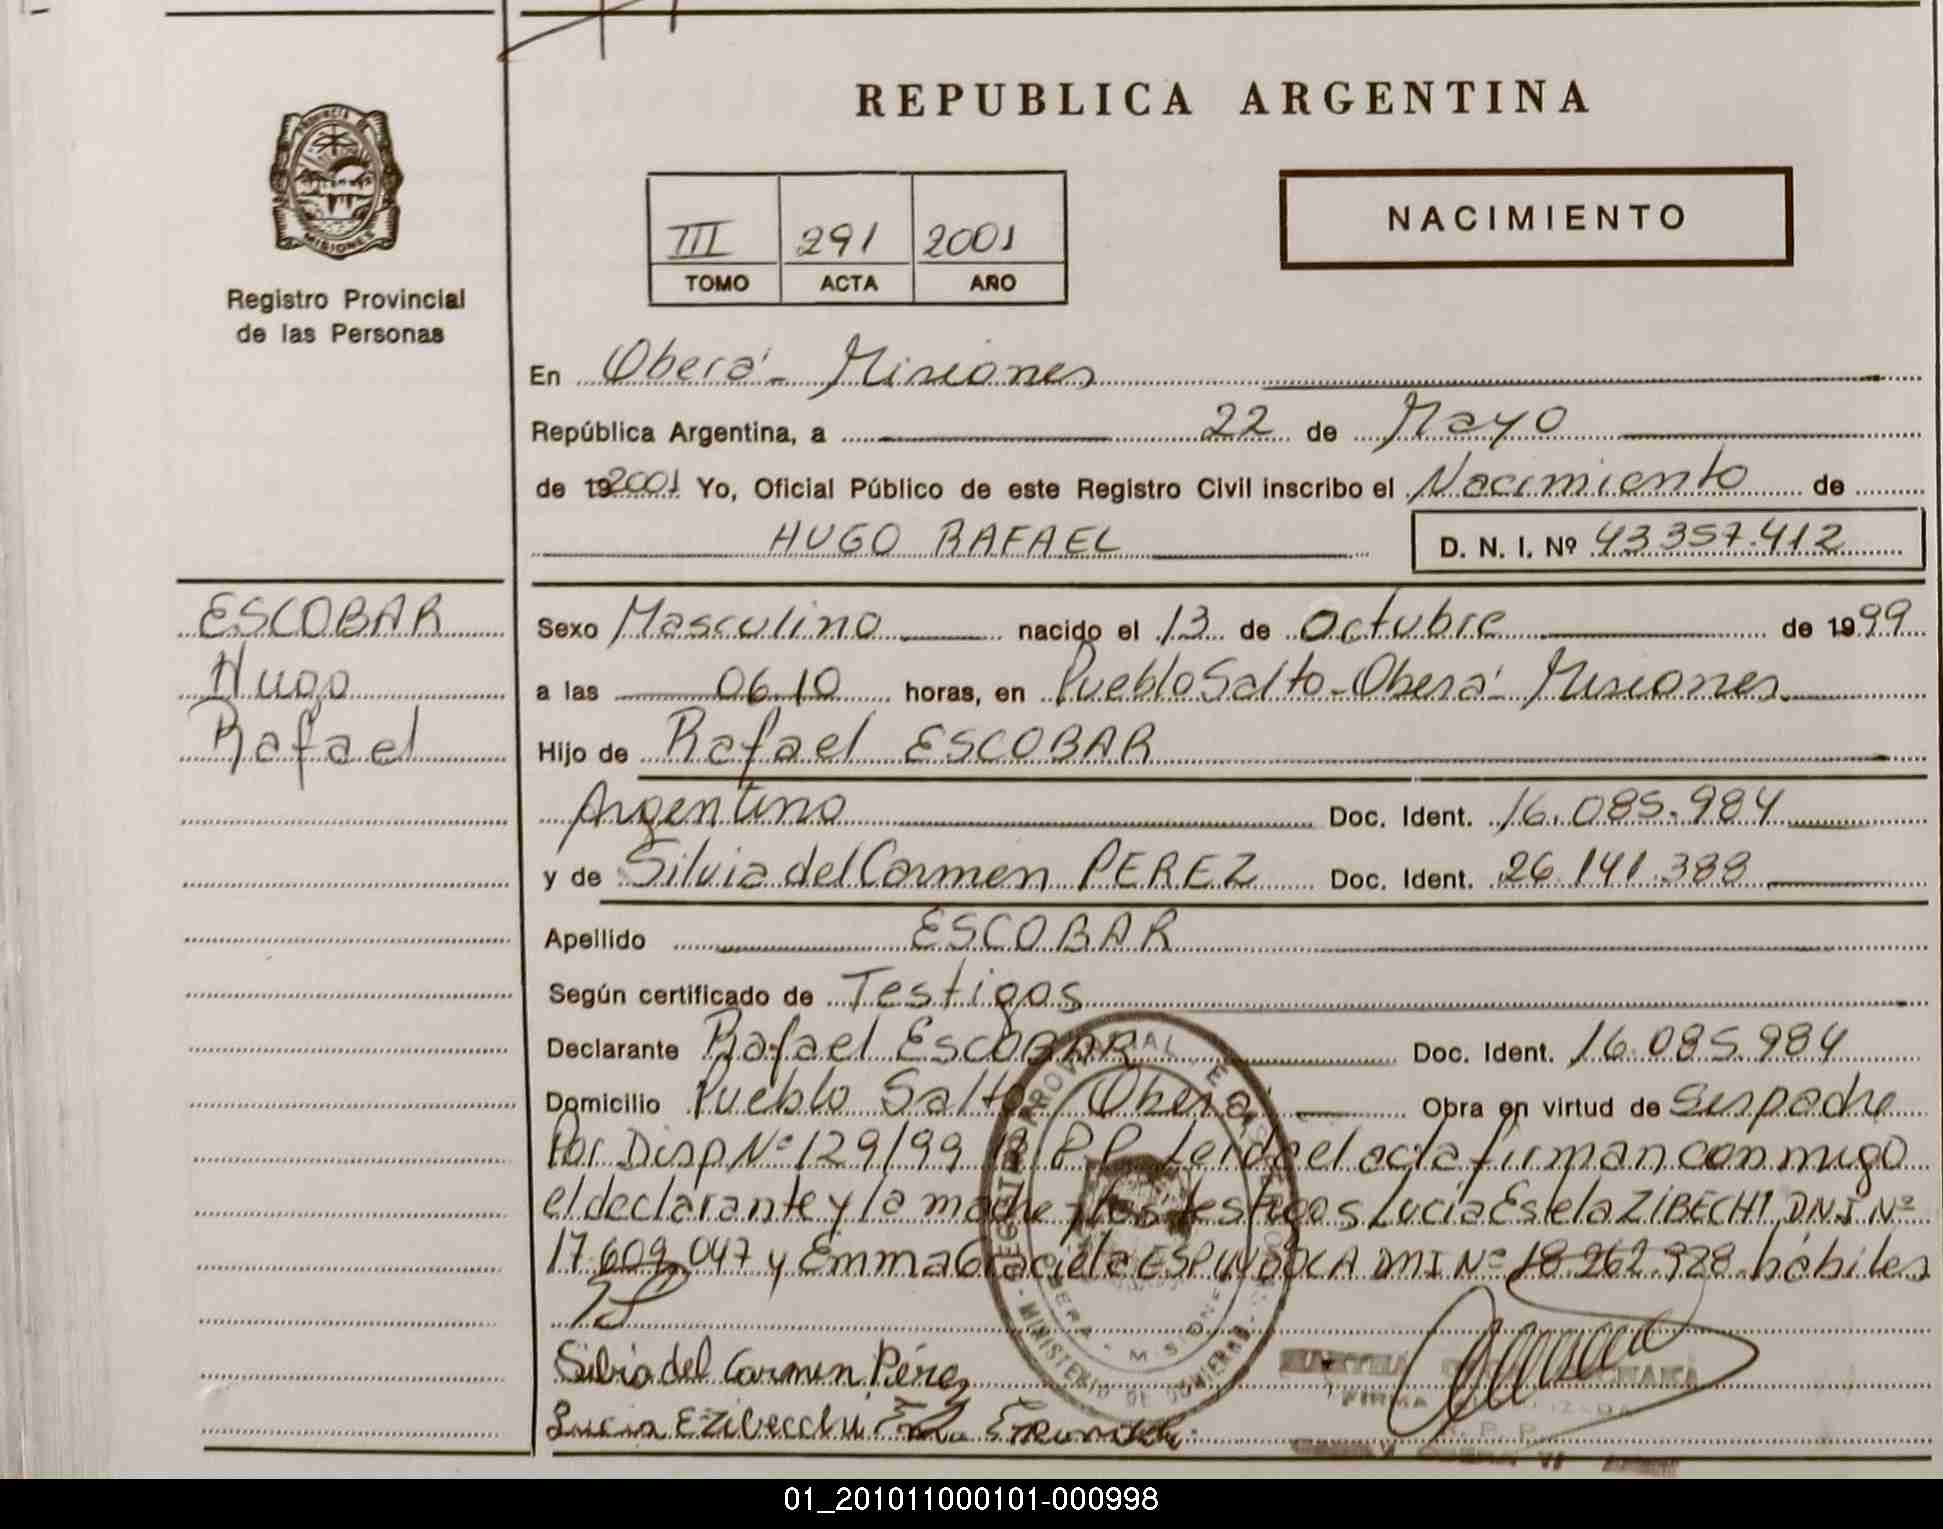 REPUBLICA ARGENTINA
PROVINCIA DE
MISIONES
Registro Provincial
de las Personas
III 291 2001
TOMO ACTA AÑO
NACIMIENTO
En Oberá - Misiones
República Argentina, a 22 de Mayo
de 192001 Yo, Oficial Público de este Registro Civil inscribo el Nacimiento de
HUGO RAFAEL D. N. I. Nº 43357.412
ESCOBAR
Hugo
Rafael
Sexo Masculino nacido el 13 de Octubre de 1999
a las 06.10 horas, en Pueblo Salto - Oberá - Misiones
Hijo de Rafael ESCOBAR
Argentino Doc. Ident. 16.085.984
y de Silvia del Carmen PEREZ Doc. Ident. 26.141.388
Apellido ESCOBAR
Según certificado de Testigos
Declarante Rafael ESCOBAR Doc. Ident. 16.085.984
Domicilio Pueblo Salto Oberá Obra en virtud de Ser padre
Por Disp Nº 129/99 R.P.P. Leída el acta firman conmigo
el declarante y la madre y los testigos Lucía Estela ZIBECHI DNI Nº
17.609.047 y Emma Graciela ESPINDOLA DNI Nº 18.262.928 hábiles
Silvia del Carmen Pérez
Lucia E Zibecchi
MINISTERIO DE GOBIERNO
01_201011000101-000998